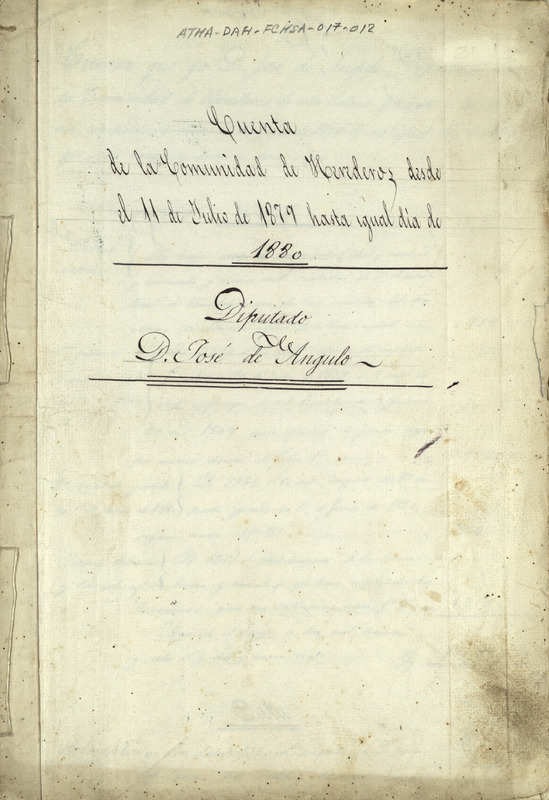 ATMA-DAH-FCHSA-017-012
Cuenta
de la Comunidad de Herederos desde
el 11 de Julio de 1879 hasta igual dia de
1880
Diputado
D. José de Angulo